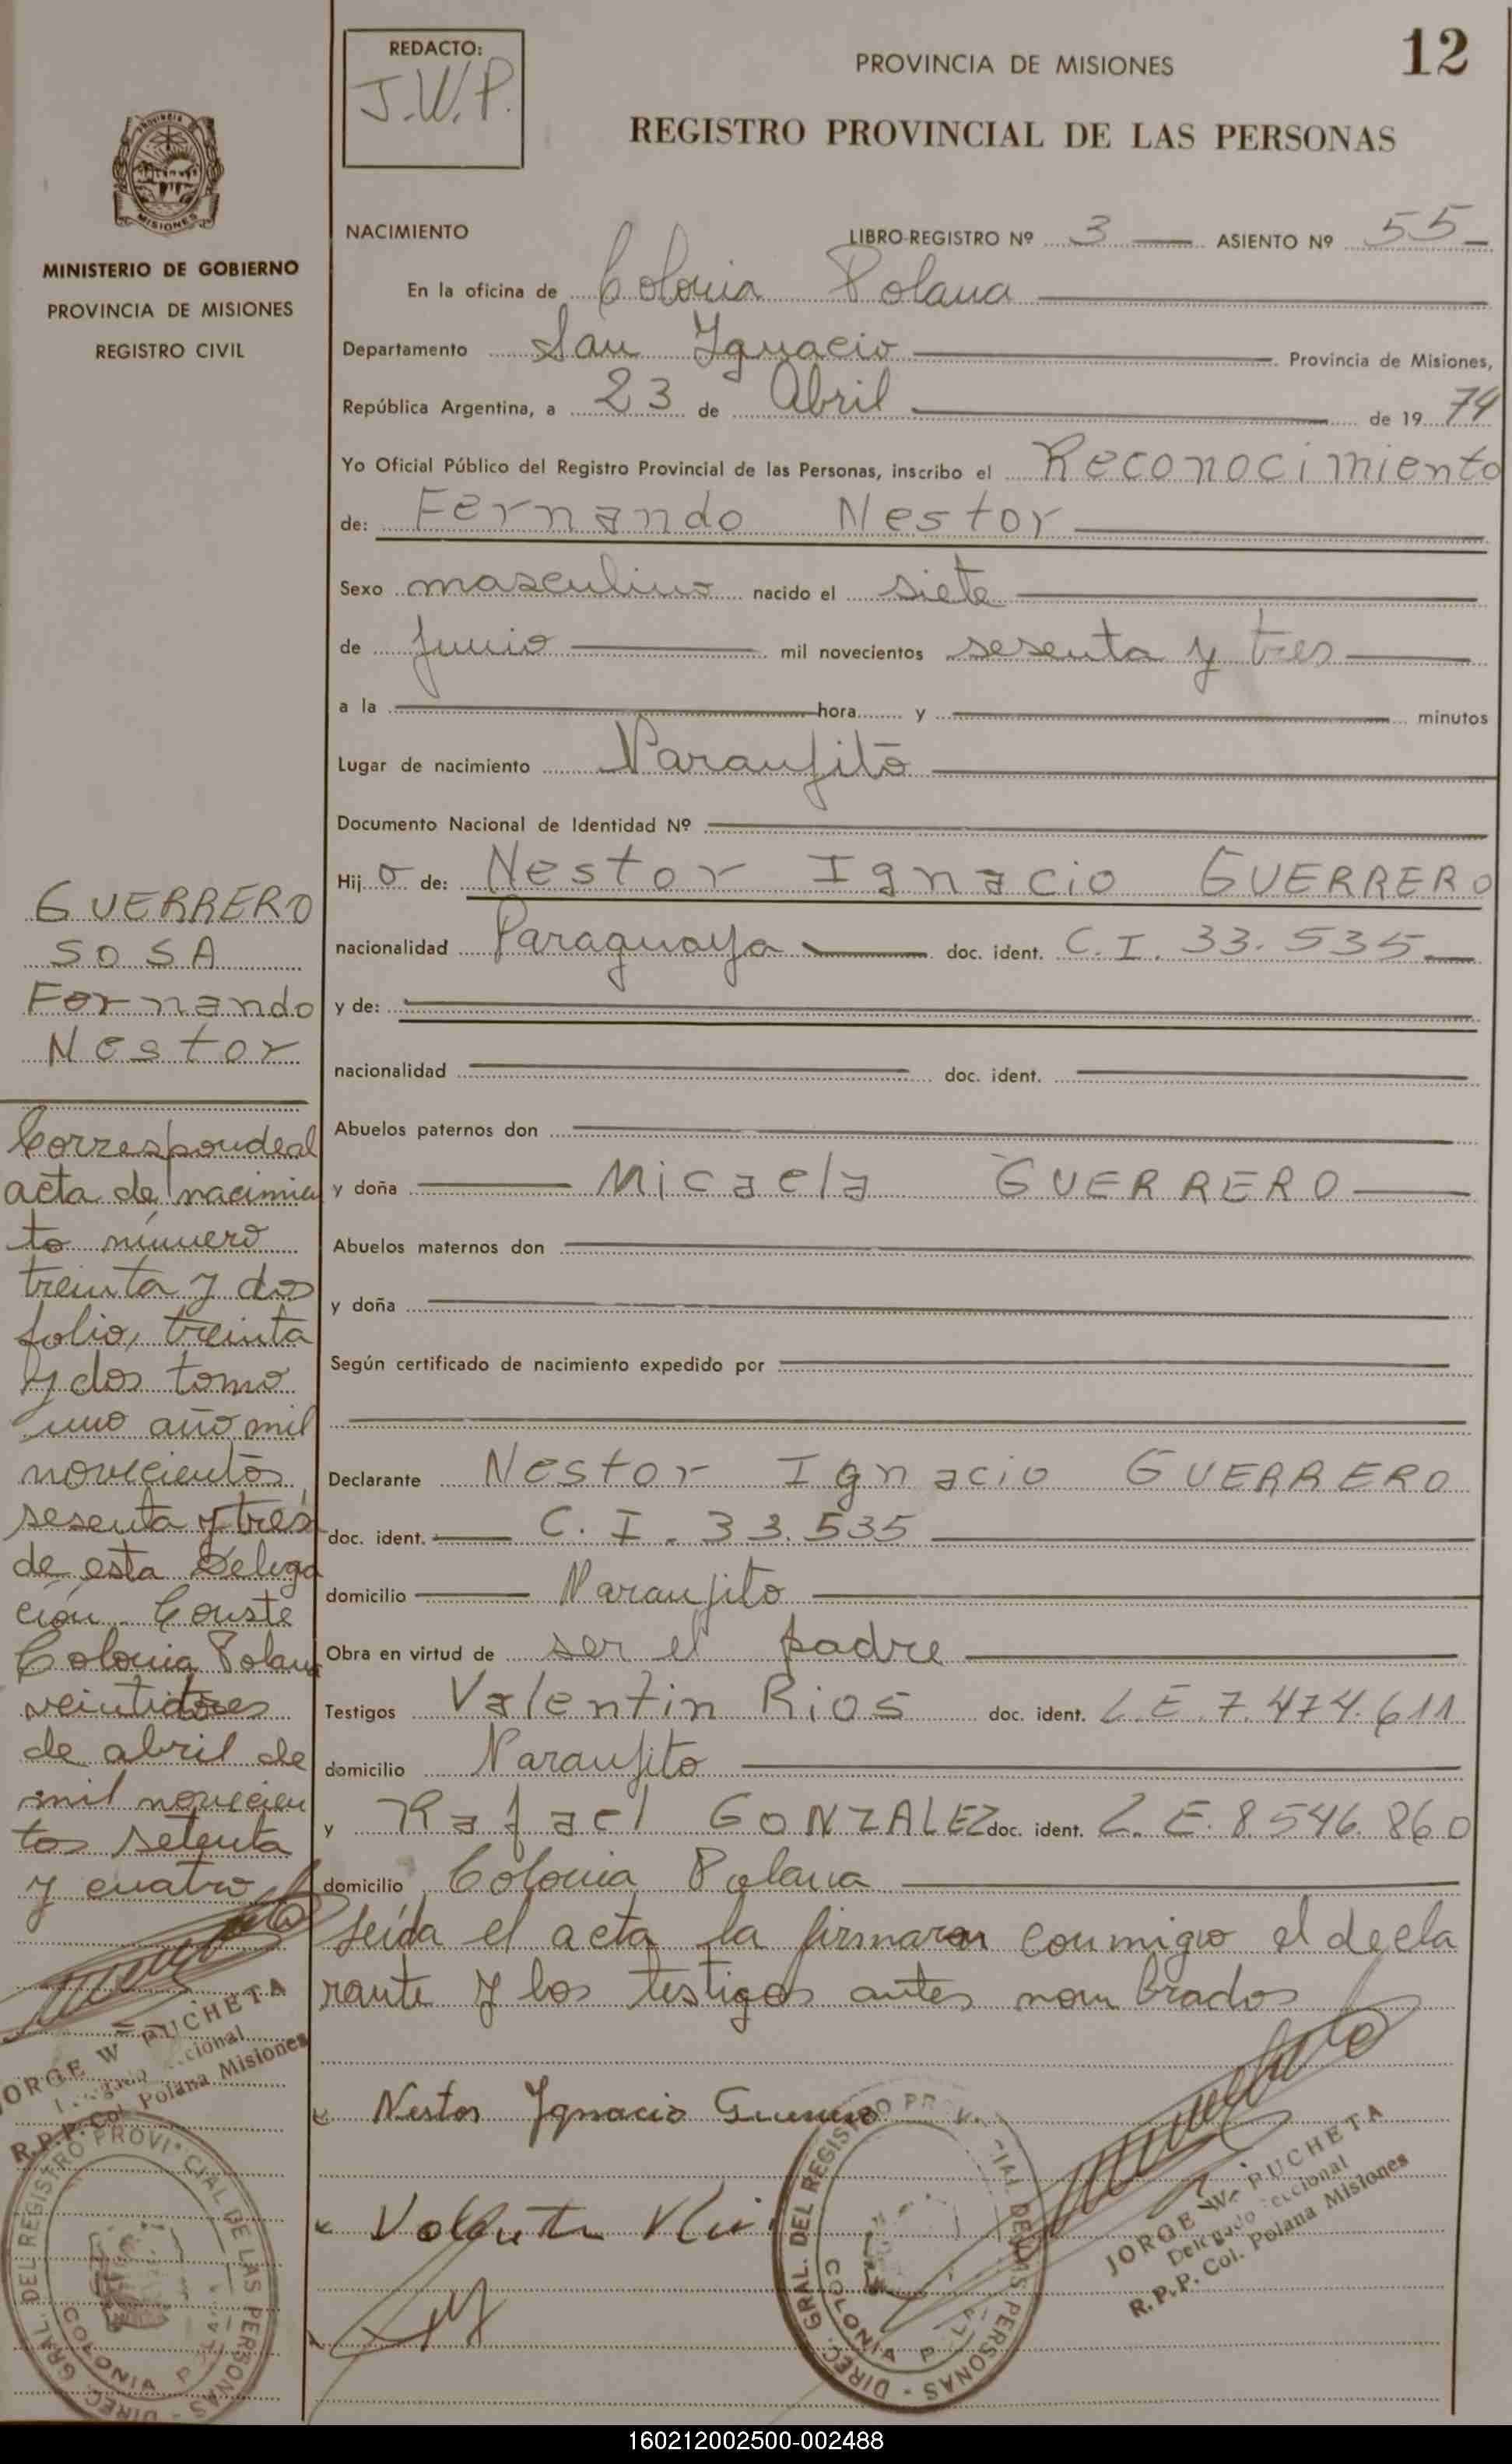 REDACTO:
J.W.P.
PROVINCIA DE MISIONES
12
REGISTRO PROVINCIAL DE LAS PERSONAS
PROVINCIA
MISIONES
MINISTERIO DE GOBIERNO
PROVINCIA DE MISIONES
REGISTRO CIVIL
NACIMIENTO LIBRO-REGISTRO Nº 3 ASIENTO Nº 55
En la oficina de Colonia Polana
Departamento San Ygnacio Provincia de Misiones,
República Argentina, a 23 de Abril de 19 74
Yo Oficial Público del Registro Provincial de las Personas, inscribo el Reconocimiento
de: Fernando Nestor
Sexo masculino nacido el siete
de Junio mil novecientos sesenta y tres
a la hora y minutos
Lugar de nacimiento Naranjito
Documento Nacional de Identidad Nº
Hij o de: Nestor Ignacio GUERRERO
nacionalidad Paraguaya doc. ident. C.I. 33.535
y de:
nacionalidad doc. ident.
Abuelos paternos don
y doña Micaela GUERRERO
Abuelos maternos don
y doña
Según certificado de nacimiento expedido por
Declarante Nestor Ignacio GUERRERO
doc. ident. C.I. 33.535
domicilio Naranjito
Obra en virtud de ser el padre
Testigos Valentin Rios doc. ident. L.E. 7.474.611
domicilio Naranjito
y Rafael GONZALEZ doc. ident. L.E. 8.546.860
domicilio Colonia Polana
Leída el acta la firmaron conmigo el decla
rante y los testigos antes nombrados
Nestor Ygnacio Guerrero
JORGE W. PUCHETA
Delegado Seccional
R.P.P. Col. Polana Misiones
DIREC. GRAL. DEL REGISTRO PROVINCIAL DE LAS PERSONAS
COLONIA POLANA
GUERRERO
SOSA
Fernando
Nestor
Corresponde al
acta de nacimien
to número
treinta y dos
folio, treinta
y dos tomo
uno año mil
novecientos
sesenta y tres
de esta Delega
ción. Conste
Colonia Polana
de abril de
mil novecien
tos setenta
y cuatro
JORGE W PUCHETA
R.P.P. Col. Polana Misiones
DIREC. GRAL. DEL REGISTRO PROVINCIAL DE LAS PERSONAS
COLONIA
160212002500-002488